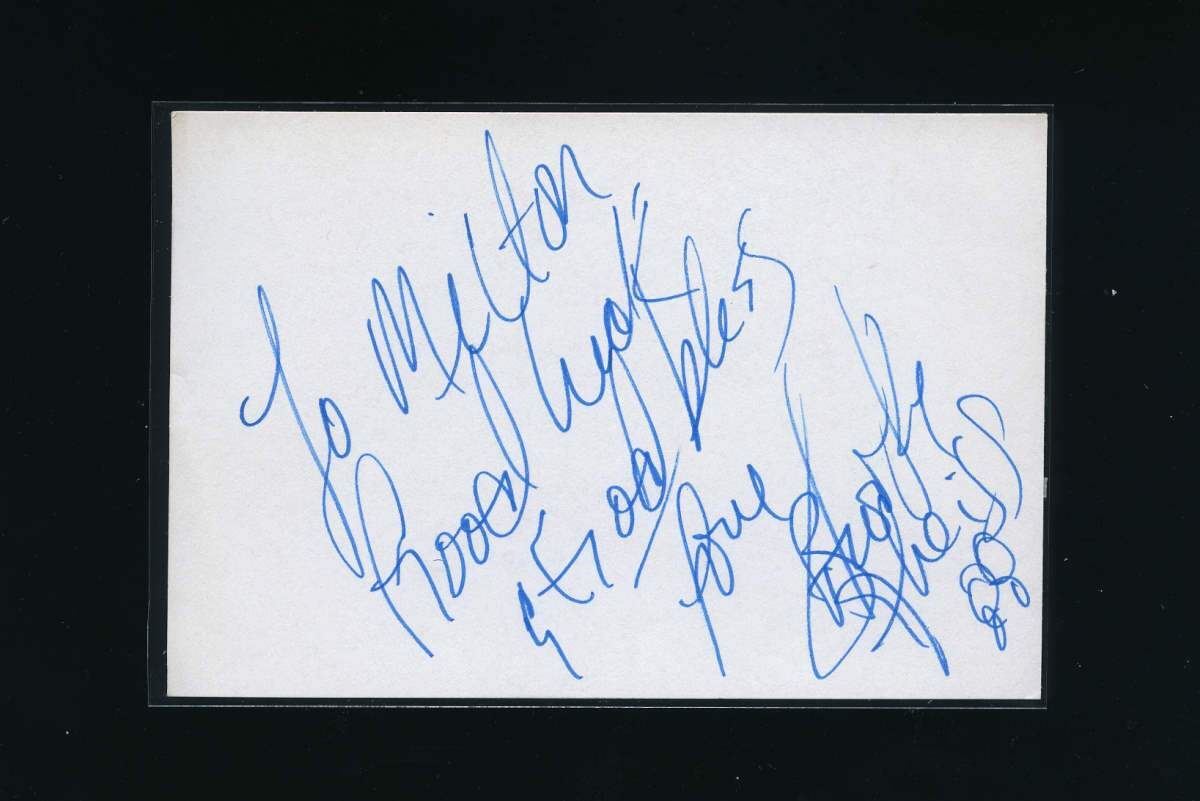 To Milton
Good Luck
& God bless
Love